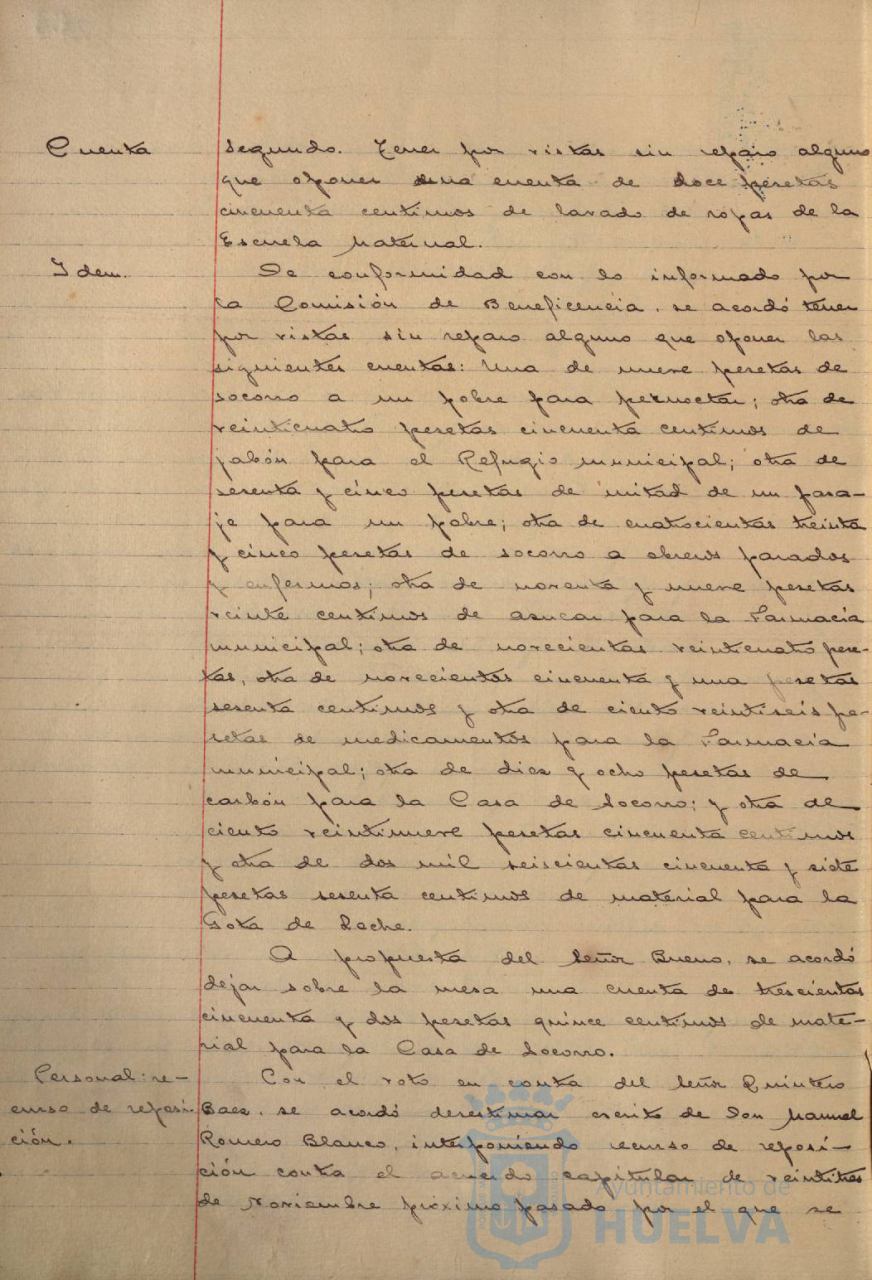 Cuenta
segundo. Tener por vistas sin reparo alguno
que oponer una cuenta de doce pesetas
cincuenta centimos de lavado de ropas de la
Escuela Maternal.
Idem.
De conformidad con lo informado por
la Comisión de Beneficencia, se acordó tener
por vistas sin reparo alguno que oponer las
siguientes cuentas: Una de nueve pesetas de
socorro a un pobre para pernoctar; otra de
veinticuatro pesetas cincuenta centimos de
jabón para el Refugio municipal; otra de
sesenta y cinco pesetas de mitad de un pasa-
je para un pobre; otra de cuatrocientas treinta
y cinco pesetas de socorro a obreros parados
y enfermos; otra de noventa y nueve pesetas
veinte centimos de azucar para la Farmacia
municipal; otra de novecientas veinticuatro pese-
tas, otra de novecientas cincuenta y una pesetas
sesenta centimos y otra de ciento veintiseis pe-
setas de medicamentos para la Farmacia
municipal; otra de diez y ocho pesetas de
carbón para la Casa de Socorro; y otra de
ciento veintinueve pesetas cincuenta centimos
y otra de dos mil seiscientas cincuenta y siete
pesetas sesenta centimos de material para la
Gota de Leche.
A propuesta del Señor Bueno, se acordó
dejar sobre la mesa una cuenta de trescientas
cincuenta y dos pesetas quince centimos de mate-
rial para la Casa de Socorro.
Personal: re-
curso de reposi-
ción.
Con el voto en contra del Señor Quintero
Baez, se acordó desestimar escrito de Don Manuel
Romero Blanco, interponiendo recurso de reposi-
ción contra el acuerdo capitular de veintitres
de Noviembre próximo pasado por el que se
Ayuntamiento de
HUELVA